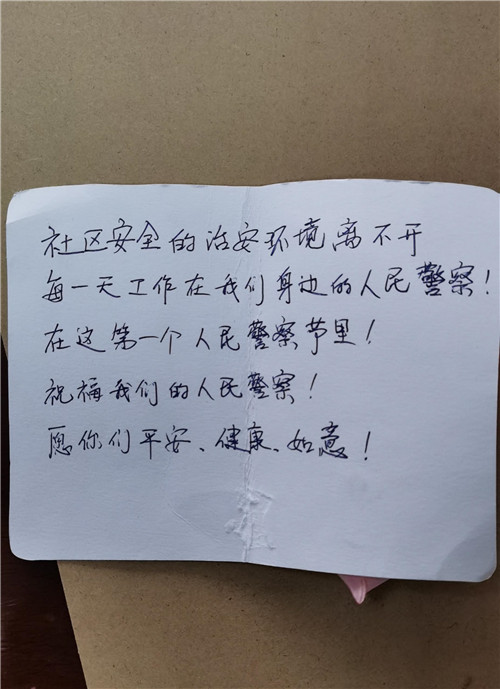 社区安全的治安环境离不开
每一天工作在我们身边的人民警察！
在这第一个人民警察节里！
祝福我们的人民警察！
愿你们平安、健康、如意！